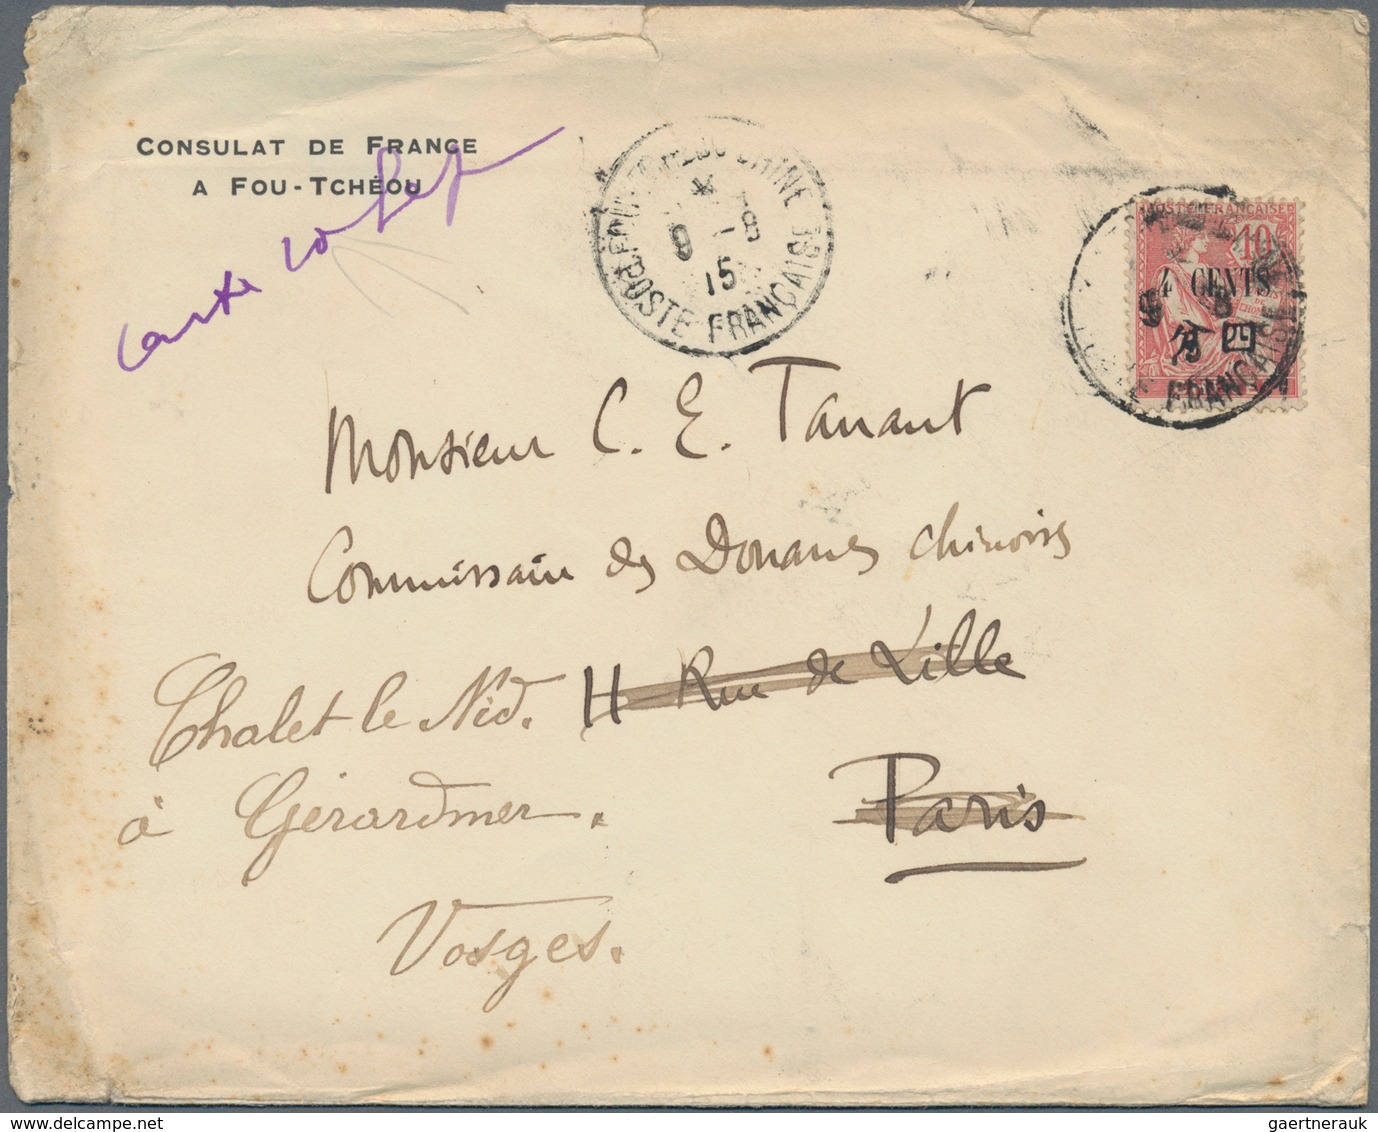 CONSULAT DE FRANCE
A FOU-TCHÉOU
Carte
FOU-TCHEOU CHINE
9 -8
15
POSTE FRANÇAISE
POSTE FRANÇAISE
10
4 CENTS
分四
9 8
15
POSTE FRANÇAISE
Monsieur C. E. Tanant
Commissaire des Douanes chinoises
11 Rue de Lille
Paris
Chalet le Nid.
à Gérardmer.
Vosges.
gaertnerauk / delcampe.net